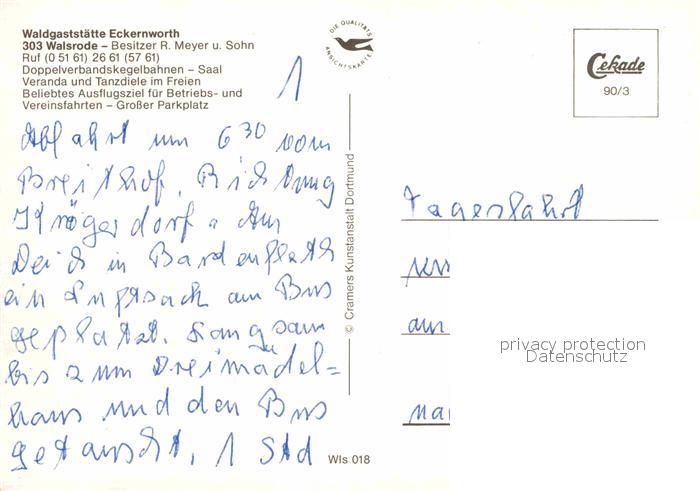 Waldgaststätte Eckernworth
303 Walsrode – Besitzer R. Meyer u. Sohn
Ruf (0 51 61) 26 61 (57 61)
Doppelverbandskegelbahnen – Saal
Veranda und Tanzdiele im Freien
Beliebtes Ausflugsziel für Betriebs- und
Vereinsfahrten – Großer Parkplatz
1
Abfahrt um 6 30 vom
Breithof, Richtung
Krögerdorf. Am
Deich in Bardenfleth
ein Luftsack am Bus
geplatzt. Langsam
bis zum Dreimädel=
haus und den Bus
getauscht. 1 Std
DIE QUALITÄTS
ANSICHTSKARTE
© Cramers Kunstanstalt Dortmund
Wls 018
Cekade
90/3
Tagesfahrt
am
privacy protection
Datenschutz